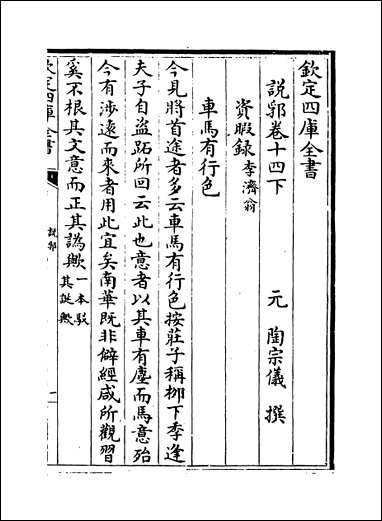 欽定四庫全書
說郛卷十四下
元 陶宗儀 撰
資暇録 李濟翁
車馬有行色
今見將首途者多云車馬有行色按莊子稱柳下季逢
夫子自盜跖所回云此也意者以其車有塵而馬意殆
今有涉遠而來者用此宜矣南華既非僻經咸所觀習
奚不根其文意而正其譌歟 一本駁其誕歟
欽定四庫全書
說郛
一